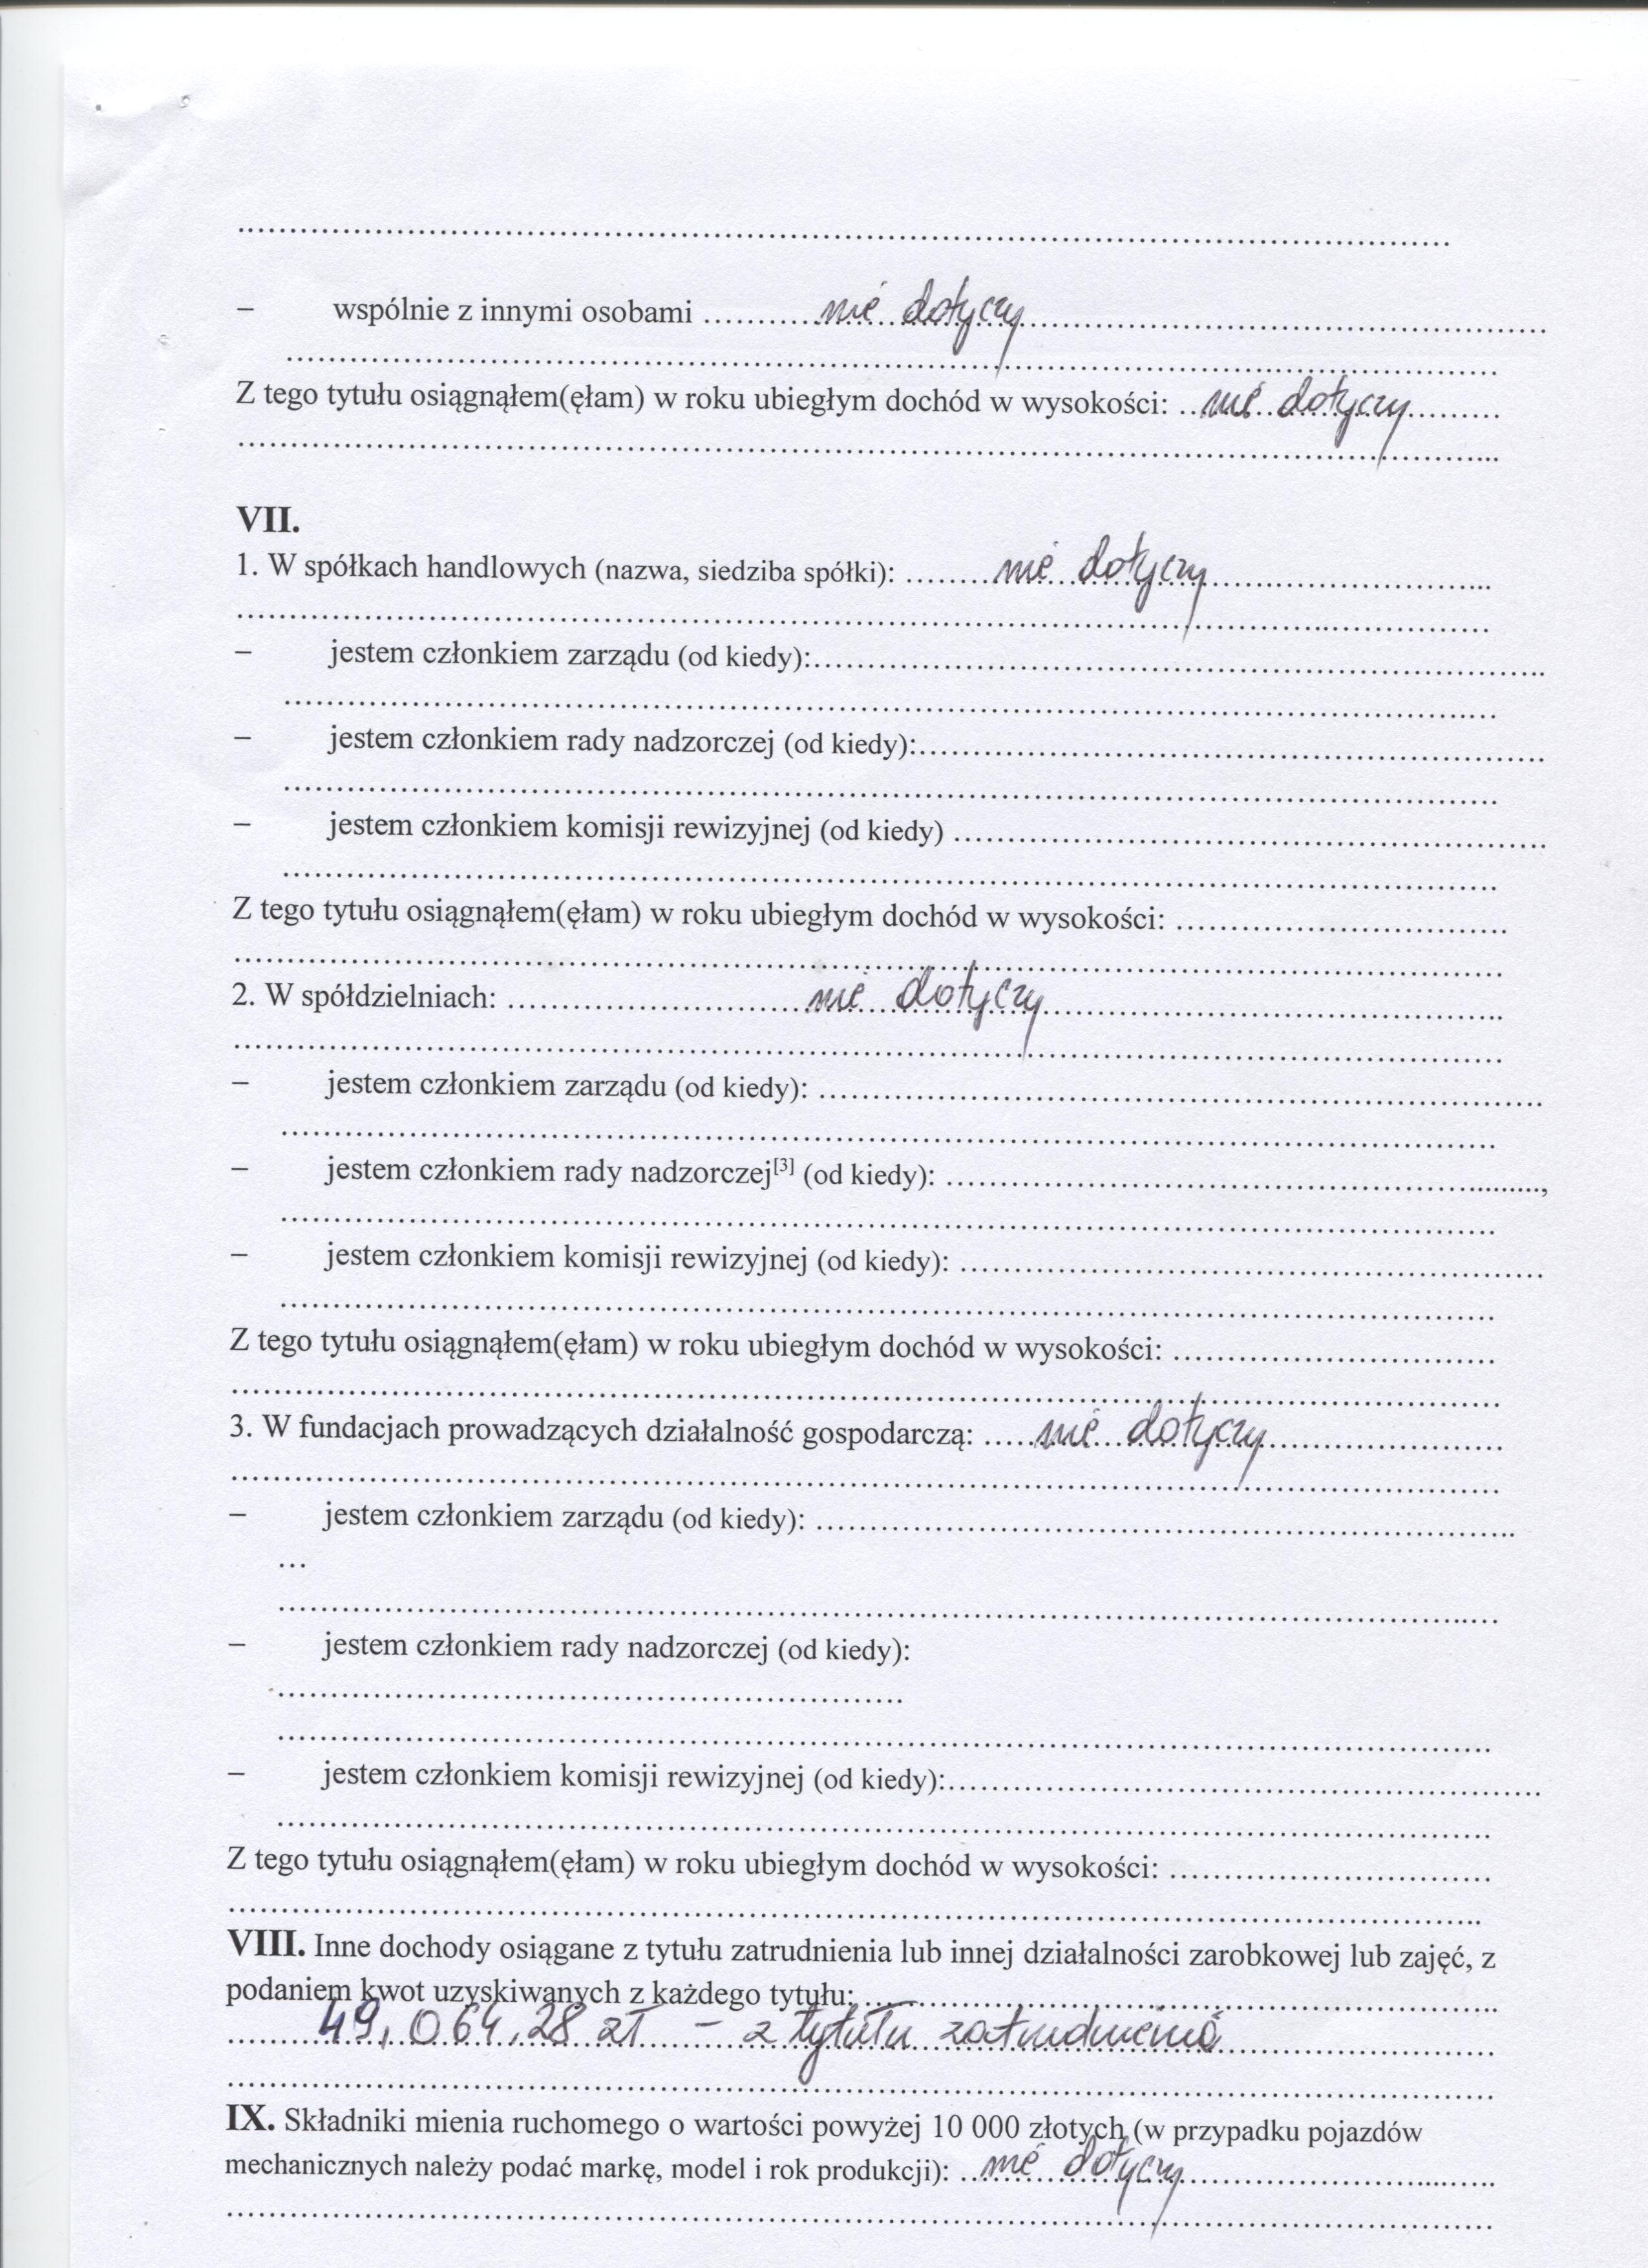 – wspólnie z innymi osobami .......... nie dotyczy ..........
Z tego tytułu osiągnąłem(ęłam) w roku ubiegłym dochód w wysokości: .. nie dotyczy ..........
VII.
1. W spółkach handlowych (nazwa, siedziba spółki): ........ nie dotyczy ..........
– jestem członkiem zarządu (od kiedy):..........
– jestem członkiem rady nadzorczej (od kiedy):..........
– jestem członkiem komisji rewizyjnej (od kiedy) ..........
Z tego tytułu osiągnąłem(ęłam) w roku ubiegłym dochód w wysokości: ..........
2. W spółdzielniach: .......... nie dotyczy ..........
– jestem członkiem zarządu (od kiedy): ..........
– jestem członkiem rady nadzorczej[3] (od kiedy): ..........,
– jestem członkiem komisji rewizyjnej (od kiedy): ..........
Z tego tytułu osiągnąłem(ęłam) w roku ubiegłym dochód w wysokości: ..........
3. W fundacjach prowadzących działalność gospodarczą: ..... nie dotyczy ..........
– jestem członkiem zarządu (od kiedy): ..........
...
– jestem członkiem rady nadzorczej (od kiedy):
– jestem członkiem komisji rewizyjnej (od kiedy):..........
Z tego tytułu osiągnąłem(ęłam) w roku ubiegłym dochód w wysokości: ..........
VIII. Inne dochody osiągane z tytułu zatrudnienia lub innej działalności zarobkowej lub zajęć, z
podaniem kwot uzyskiwanych z każdego tytułu: ..........
49,064,28 zł – z tytułu zatrudnienia
IX. Składniki mienia ruchomego o wartości powyżej 10 000 złotych (w przypadku pojazdów
mechanicznych należy podać markę, model i rok produkcji): .. nie dotyczy ..........